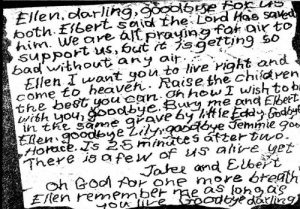 Ellen, darling, goodbye for us
both. Elbert said the Lord Has saved
him. We are all praying for air to
support us, but it is getting so
bad without any air.
Ellen I want you to live right and
come to heaven. Raise the children
the best you can. Oh how I wish to be
with you, goodbye. Bury me and Elbert
in the same grave by little Eddy. Godbye
Ellen, goodbye Lily, goodbye Jemmie, goodbye
Horace. Is 25 minutes after two.
There is a few of us alive yet
Jake and Elbert
Oh God for one more breath
Ellen remember me as long as
you live Goodbye darling